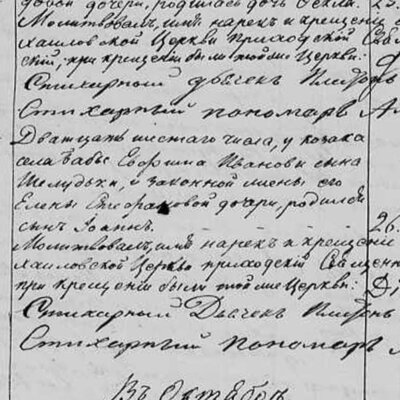 довой дочери, родилась дочь 25.
Молитвовалъ, имя нарекъ и крещение
хаиловской Церкви Приходской
ский, при крещении были той же Церкви:
Стихарный дьячекъ
Стихарный пономарь А
Дватцать шестаго числа, у козака
села Бабы Ефима Иванова сына
Шелудька, и законной жены его
Елены Стефановой дочери, родился
сынъ Іоаннъ. 26.
Молитвовалъ, имя нарекъ и крещение
хаиловской Церкви приходский Священ
при крещении были той же Церкви:
Стихарный Дьячекъ
Стихарный пономарь
Въ Октябрѣ